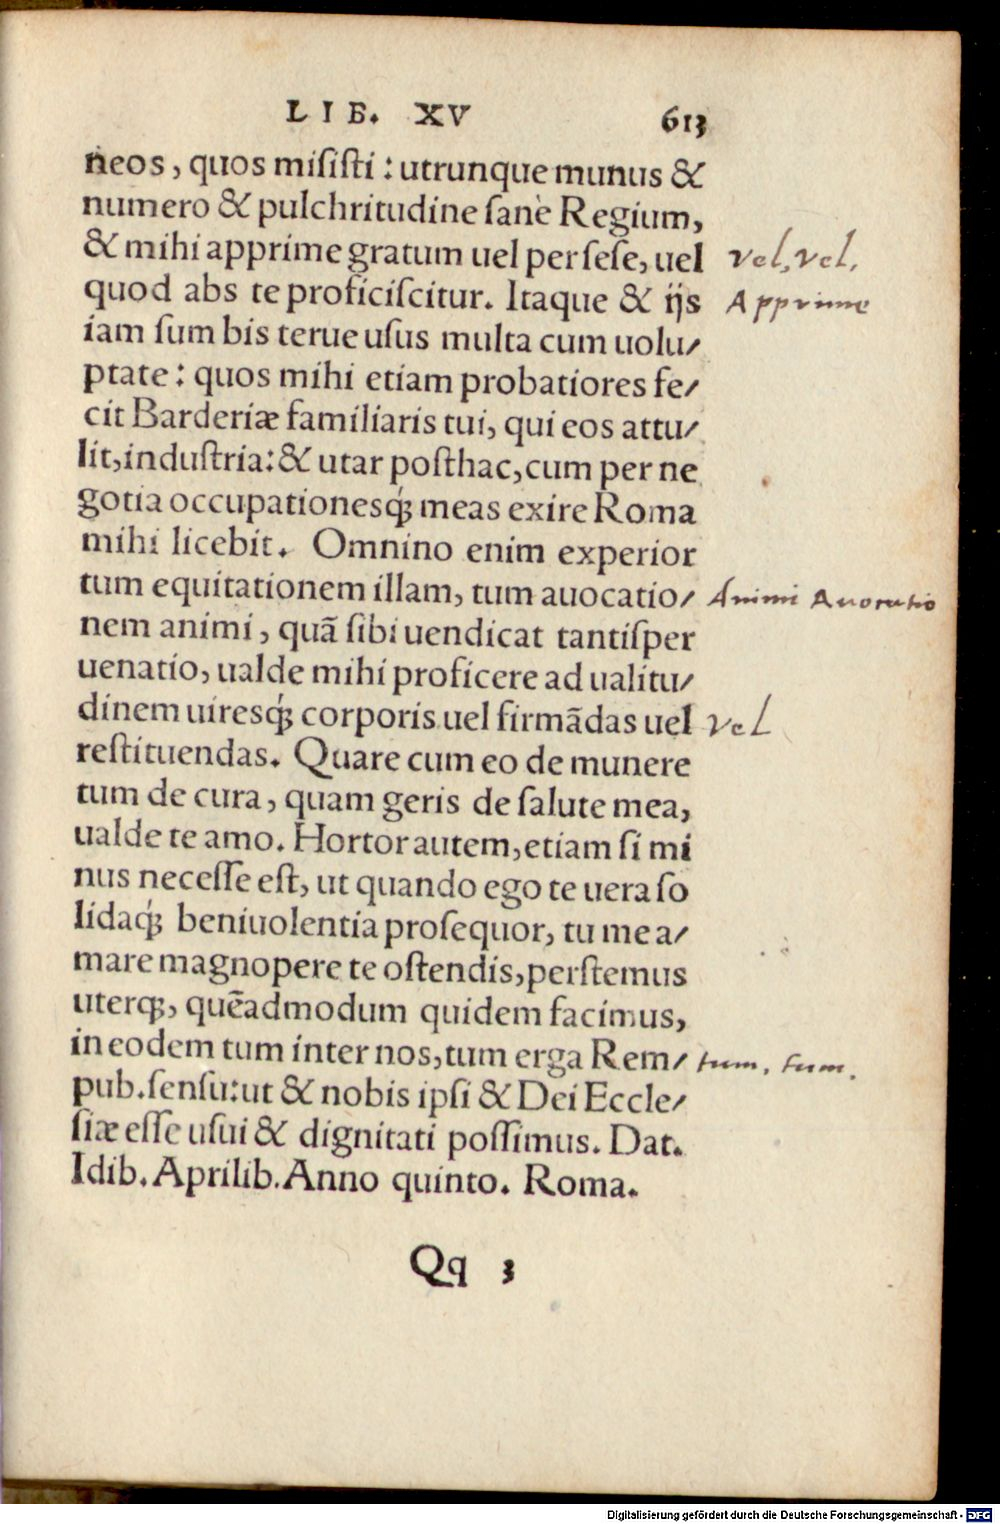 LIB. XV 613
neos, quos misisti: utrunque munus &
numero & pulchritudine sanè Regium,
& mihi apprime gratum uel per sese, uel
Vel, Vel.
quod abs te proficiscitur. Itaque & ijs
Apprime
iam sum bis terue usus multa cum uolu/
ptate: quos mihi etiam probatiores fe/
cit Barderiæ familiaris tui, qui eos attu/
lit, industria: & utar posthac, cum per ne
gotia occupationesq́; meas exire Roma
mihi licebit. Omnino enim experior
tum equitationem illam, tum auocatio/
Animi Auocatio
nem animi, quã sibi uendicat tantisper
uenatio, ualde mihi proficere ad ualitu/
dinem uiresq́; corporis uel firmãdas uel
Vel
restituendas. Quare cum eo de munere
tum de cura, quam geris de salute mea,
ualde te amo. Hortor autem, etiam si mi
nus necesse est, ut quando ego te uera so
lidaq́; beniuolentia prosequor, tu me a/
mare magnopere te ostendis, perstemus
uterq;, quẽadmodum quidem facimus,
in eodem tum inter nos, tum erga Rem/
tum, tum.
pub. sensu: ut & nobis ipsi & Dei Eccle/
siæ esse usui & dignitati possimus. Dat.
Idib. Aprilib. Anno quinto. Roma.
Qq 3
Digitalisierung gefördert durch die Deutsche Forschungsgemeinschaft - DFG